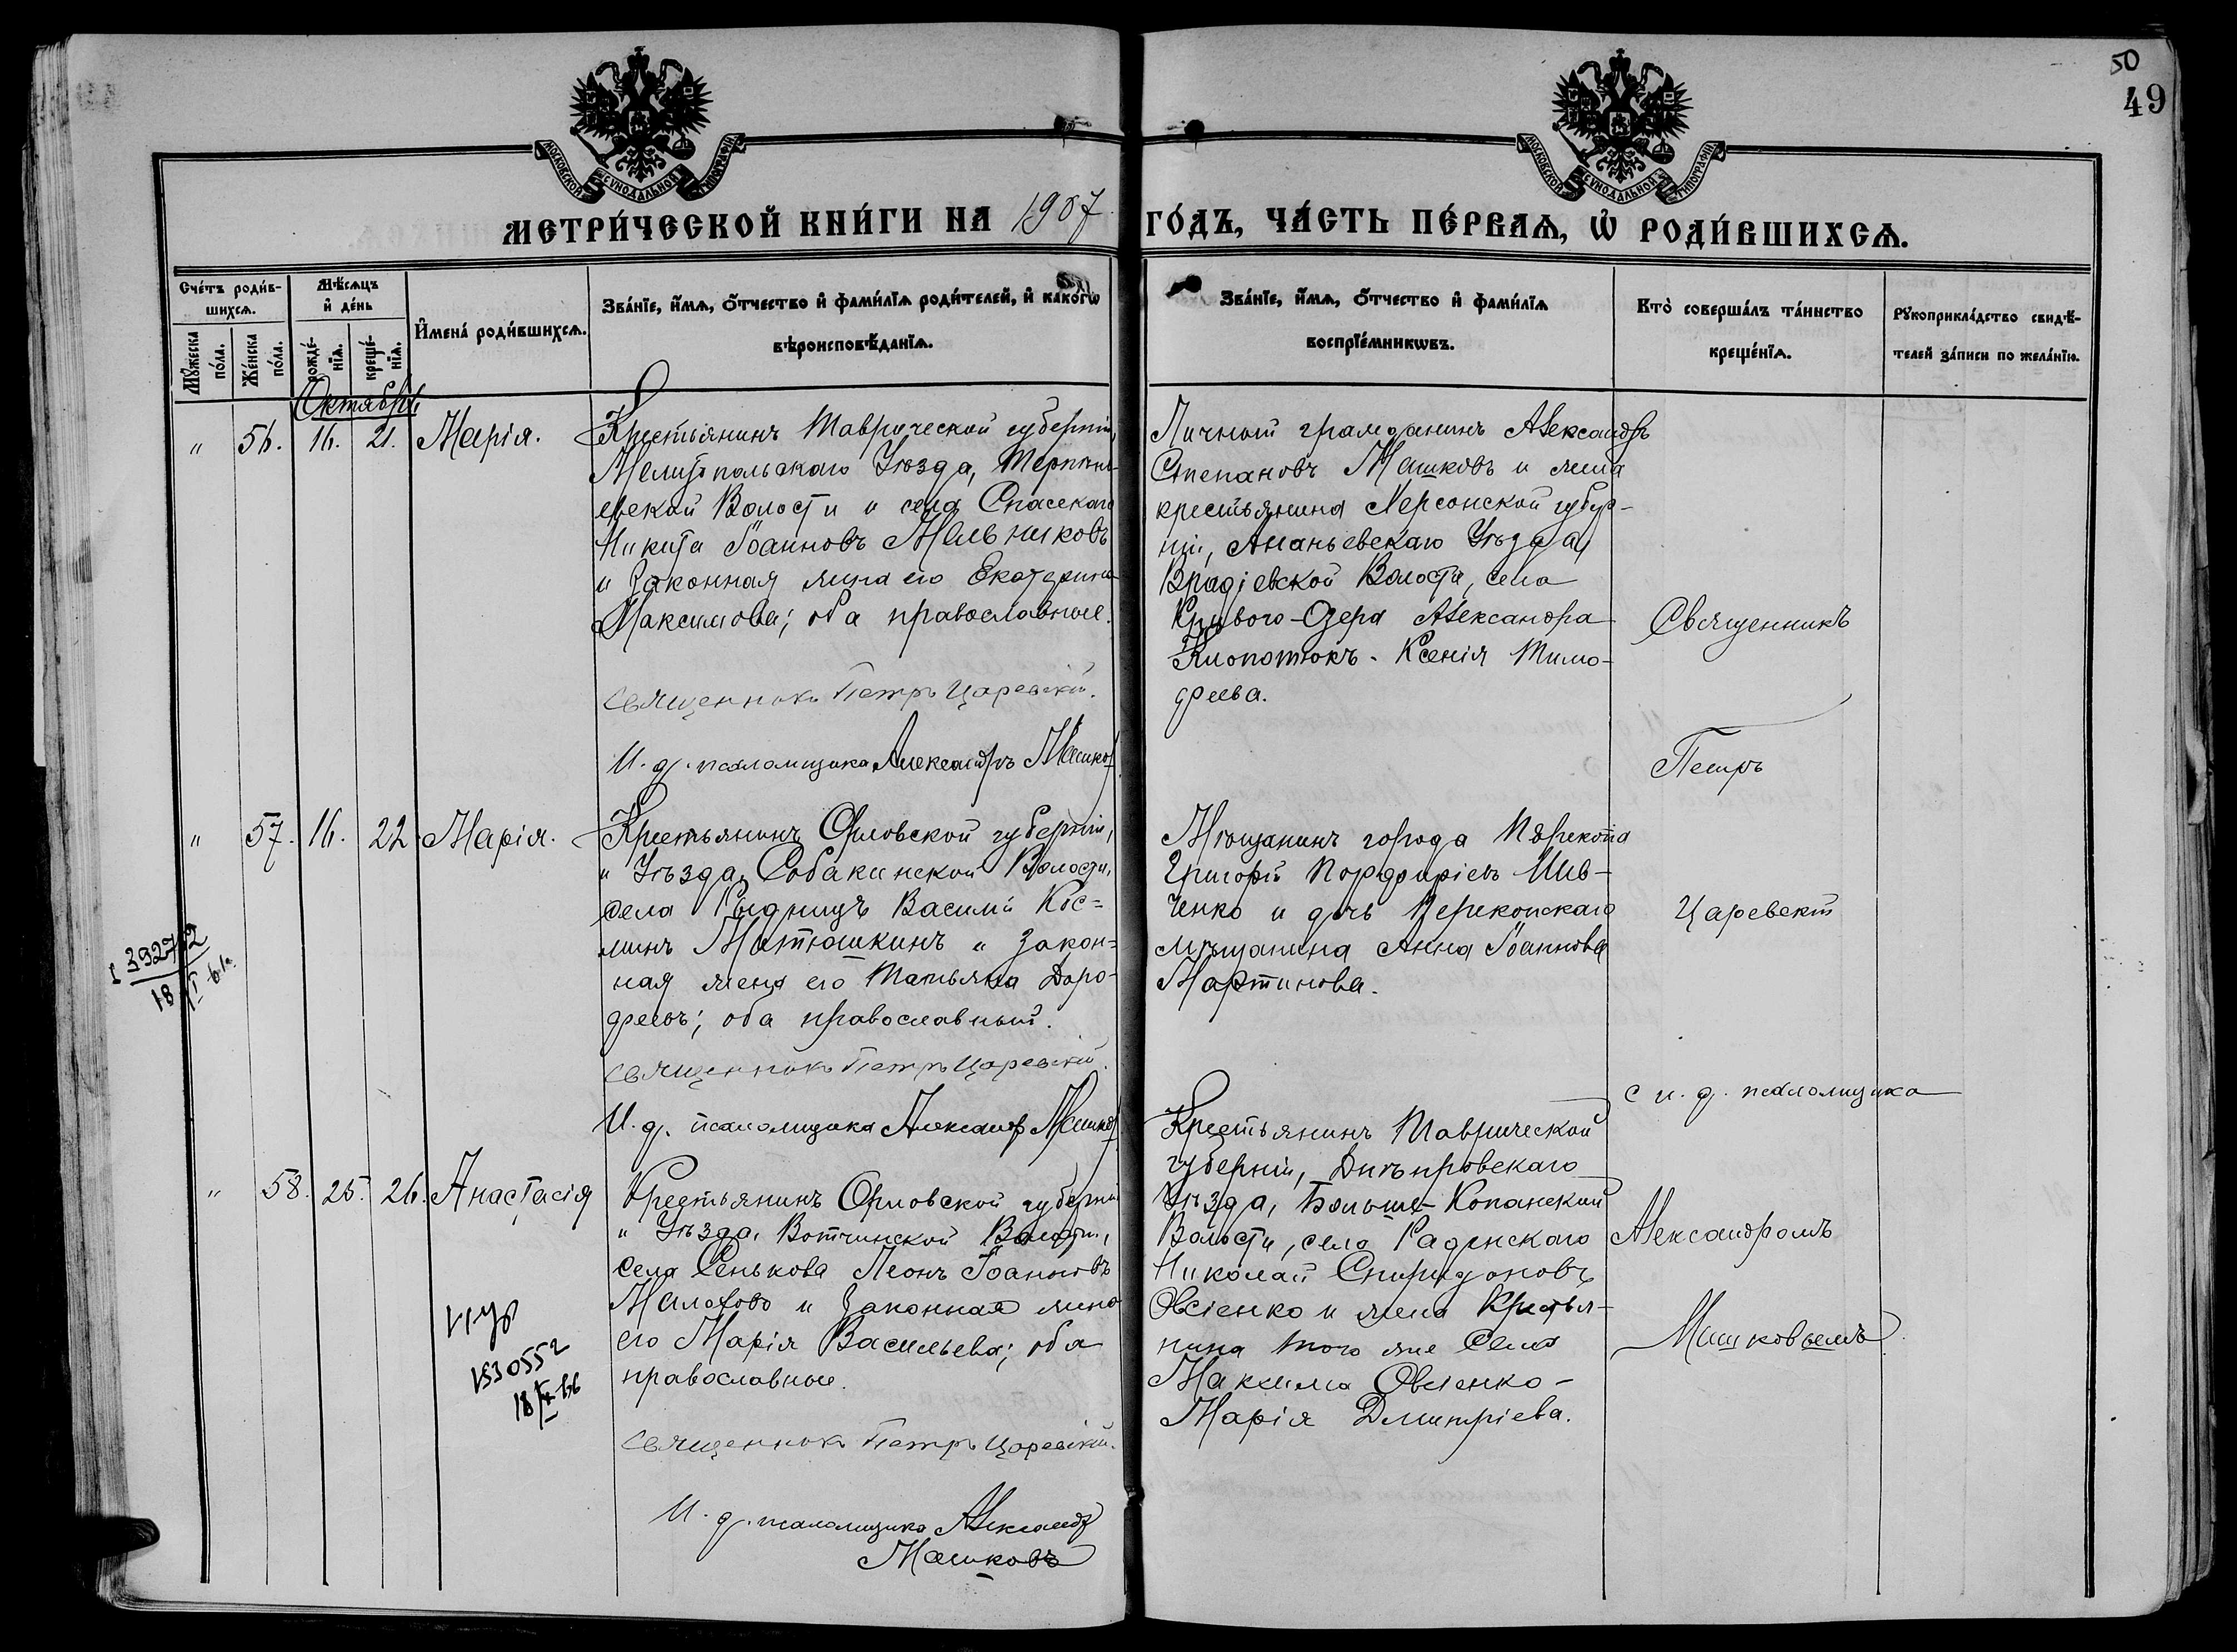 50
49
МОСКОВСКОЙ СѴНОДАЛЬНОЙ ТИПОГРАФІИ
МОСКОВСКОЙ СѴНОДАЛЬНОЙ ТИПОГРАФІИ
МЕТРИ́ЧЕСКОЙ КНИ́ГИ НА 1907 ГО́ДЪ, ЧА́СТЬ ПЕ́РВАѦ, Ѡ҆ РОДИ́ВШИХСѦ.
Сче́тъ роди́в-
шихсѧ.
Мꙋ́жеска по́ла.
Же́нска по́ла.
Мѣ́сѧцъ и҆ де́нь
рожде́-нїѧ.
креще́-нїѧ.
И҆мена̀ роди́вшихсѧ.
Зва́нїе, и҆́мѧ, ѻ҆́тчество и҆ фами́лїѧ роди́телей, и҆ како́гѡ
вѣроисповѣ́данїѧ.
Зва́нїе, и҆́мѧ, ѻ҆́тчество и҆ фами́лїѧ
воспрїе́мникѡвъ.
Кто̀ соверша́лъ та́инство
креще́нїѧ.
Рꙋкоприкла́дство свидѣ́-
телей за́писи по жела́нїю.
Октября
" 56. 16. 21. Марія.
Крестьянинъ Таврической губерніи,
Мелитопольскаго Уѣзда, Терпѣнь-
евской Волости и села Спасскаго
Никита Іоанновъ Мельниковъ
и законная жена его Екатерина
Максимова; оба православные.
Священникъ Петръ Царевскій.
И. д. псаломщика Александръ Машковъ
Личный гражданинъ Александръ
Степановъ Машковъ и жена
крестьянина Херсонской губер-
ніи, Ананьевскаго Уѣзда,
Врадіевской Волости, села
Криваго-Озера Александра
Клопотюкъ - Ксенія Тимо-
феева.
" 57. 16. 22 Марія.
Крестьянинъ Орловской губерніи,
и Уѣзда, Собакинской Волости,
села Васили Кос-
минъ Матюшкинъ и закон-
ная жена его Татьяна Доро-
феевъ; оба православный.
Священникъ Петръ Царевскій.
И. д. псаломщика Александръ Машковъ
Мѣщанинъ города Перекопа
Григорій Порфиріевъ Шев-
ченко и дочь Перекопскаго
мѣщанина Анна Іоаннова
Мартинова.
392712
18
" 58. 25. 26. Анастасія
Крестьянинъ Орловской губерніи
и Уѣзда, Вотчинской Волости,
села Сенькова Леонъ Іоанновъ
и законная жена
его Марія Васильева; оба
православные.
Священникъ Петръ Царевскій.
И. д. псаломщика Александръ
Машковъ
1530552
Крестьянинъ Таврической
губерніи, Днѣпровскаго
Уѣзда, Больше-Копанской
Волости, села Раденскаго
Николай Спиридоновъ
Овсіенко и жена крестья-
нина того же села
Максима Овсіенко -
Марія Дмитріева.
Священникъ
Петръ
Царевскій
с и. д. псаломщика
Александромъ
Машковымъ.